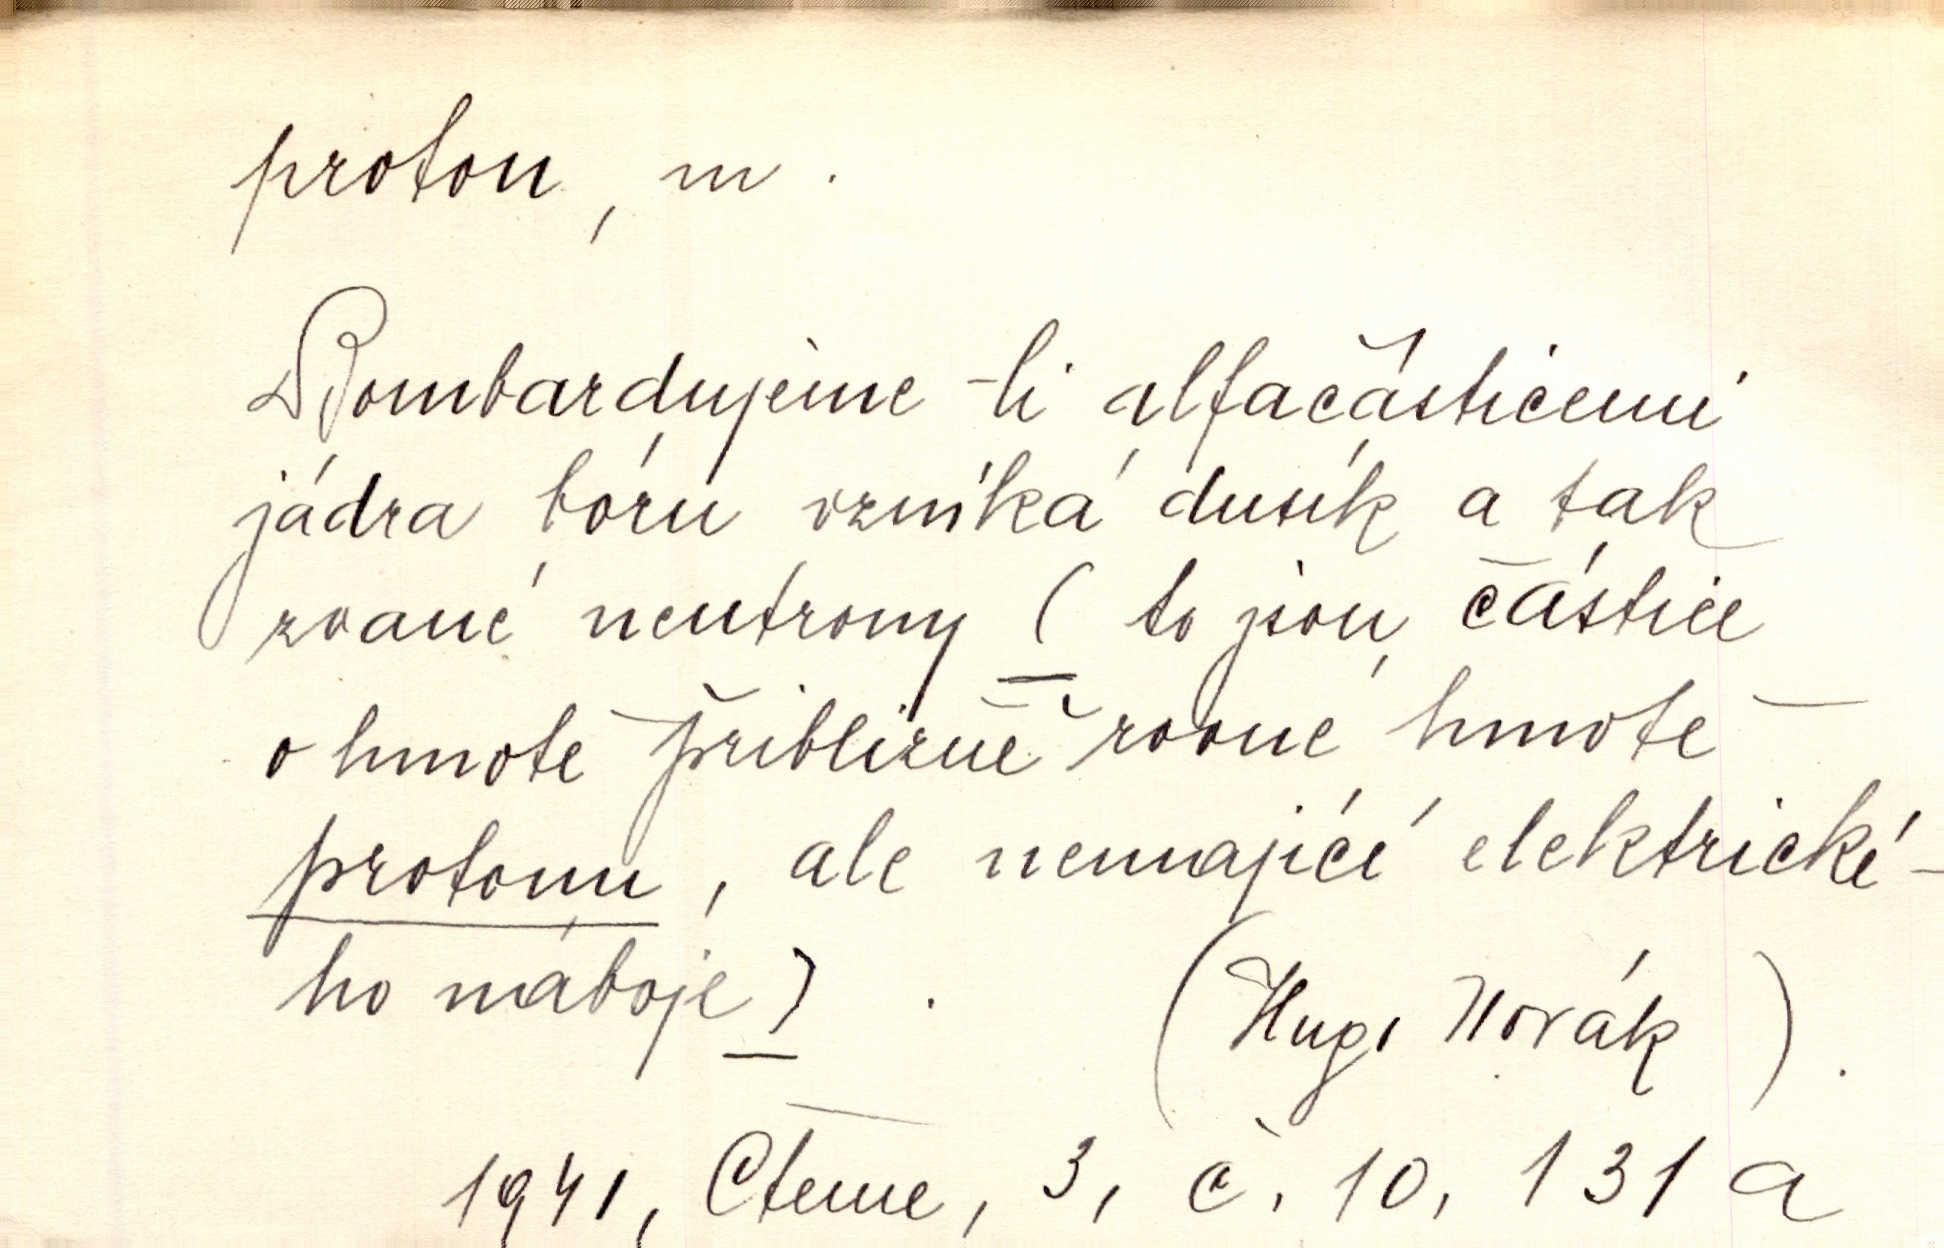 proton, m.
Bombardujeme-li alfačásticemi
jádra bóru vzniká dusík a tak
zvané neutrony (to jsou částice
o hmotě přibližně rovné hmotě
protonu, ale nemající elektrické-
ho náboje). (Hug. Novák).
1941, Čteme, 3, č. 10, 131 a